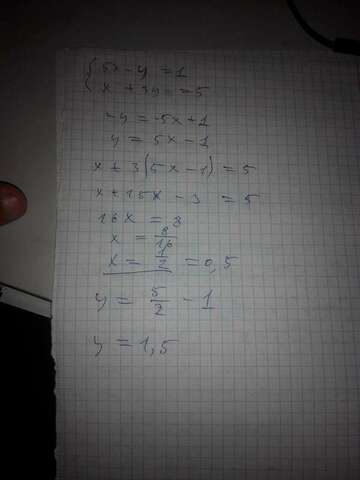 { 5x - y = 1
x + 3y = 5
-y = -5x + 1
y = 5x - 1
x + 3(5x - 1) = 5
x + 15x - 3 = 5
16x = 8
x = 8/16
x = 1/2 = 0,5
y = 5/2 - 1
y = 1,5